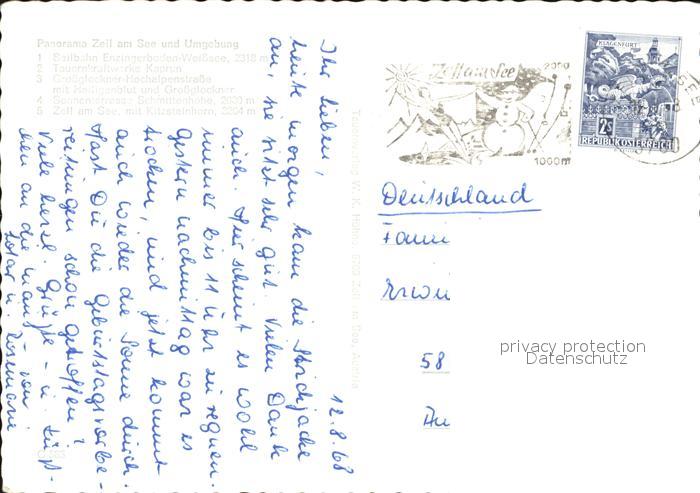 Panorama Zell am See und Umgebung
1 Seilbahn Enzingerboden-Weißsee, 2318 m
2 Tauernkraftwerke Kaprun
3 Großglockner-Hochalpenstraße
mit Heiligenblut und Großglockner
4 Sonnenterrasse Schmittenhöhe, 2000 m
5 Zell am See, mit Kitzsteinhorn, 3204 m
Zell am See
2000
1000m
KLAGENFURT
2S
REPUBLIK ÖSTERREICH
12.8.68
Ihr Lieben,
heute morgen kam die Strickjacke
an, sie sitzt sehr gut. Vielen Dank
auch. Hier scheint es wohl
immer bis 11 Uhr zu regnen.
Gestern nachmittag war es
trocken, und jetzt kommt
auch wieder die Sonne durch.
Hast Du die Geburtstagsvorbe-
reitungen schon getroffen?
Viele herzl. Grüße - u.
von
Deutschland
Erwin
58
privacy protection
Datenschutz